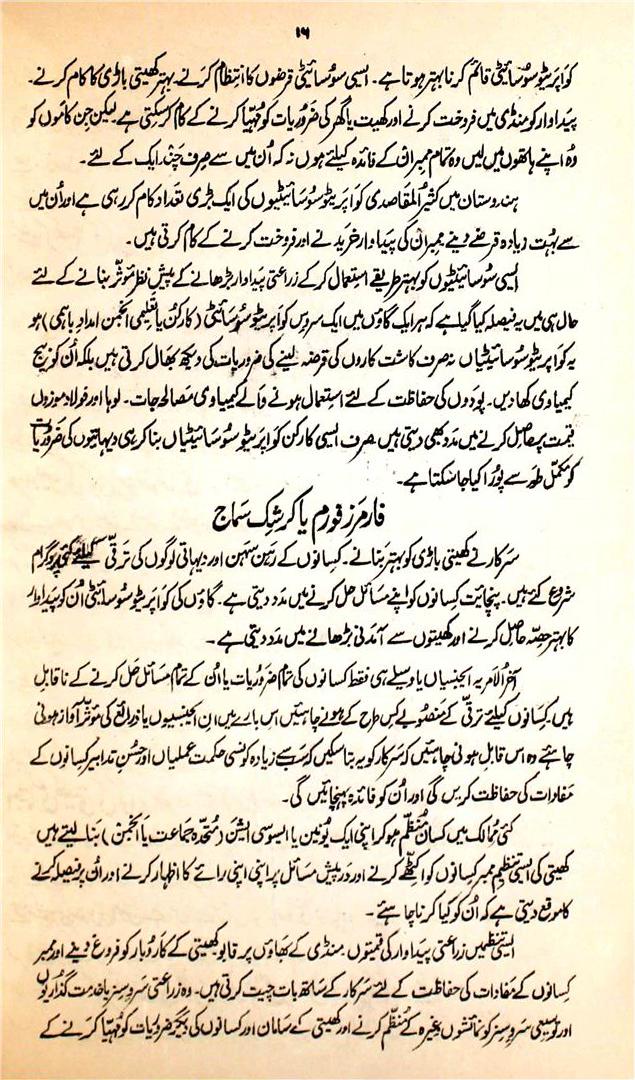 ۱۶
کواپریٹو سوسائیٹی قائم کرنا بہتر ہوتا ہے۔ ایسی سوسائیٹی قرضوں کا انتظام کرنے۔ بہتر کھیتی باڑی کا کام کرنے۔
پیداوار کو منڈی میں فروخت کرنے اور کھیت یا گھر کی ضروریات کو مُہیّا کرنے کے کام کر سکتی ہے لیکن جن کاموں کو
وُہ اپنے ہاتھوں میں لیں وہ تمام ممبران کے فائدہ کیلئے ہوں نہ کہ اُن میں سے صِرف چند ایک کے لئے۔
ہندوستان میں کثیرُالمقاصدی کواپریٹو سوسائیٹیوں کی ایک بڑی تعداد کام کر رہی ہے اور اُن میں
سے بہُت زیادہ قرضے دینے ممبران کی پیداوار خریدنے اور فروخت کرنے کے کام کرتی ہیں۔
ایسی سوسائیٹیوں کو بہتر طریقے استعمال کر کے زراعتی پیداوار بڑھانے کے پیشِ نظر موثّر بنانے کے لئے
حال ہی میں یہ فیصلہ کیا گیا ہے کہ ہر ایک گاؤں میں ایک سروس کواپریٹو سوسائیٹی (کارکُن یا تعلیمی انجمن امدادِ باہمی) ہو
یہ کواپریٹو سوسائیٹیاں نہ صرف کاشت کاروں کی قرضہ لینے کی ضروریات کی دیکھ بھال کرتی ہیں بلکہ اُن کو بیج
کیمیاوی کھادیں۔ پودوں کی حفاظت کے لئے استعمال ہونے والے کیمیاوی مصالحہ جات۔ لوہا اور فولاد موزوں
قیمت پر حاصل کرنے میں مدد بھی دیتی ہیں صرف ایسی کارکن کواپریٹو سوسائیٹیاں بنا کر ہی دیہاتیوں کی ضروریات
کو مکمّل طور سے پُورا کیا جا سکتا ہے۔
فارمرز فورم یا کرشِک سماج
سرکار نے کھیتی باڑی کو بہتر بنانے۔ کسانوں کے رہن سہن اور دیہاتی لوگوں کی ترقّی کیلئے کئی پروگرام
شروع کئے ہیں۔ پنچایت کسانوں کو اپنے مسائل حل کرنے میں مدد دیتی ہے۔ گاؤں کی کواپریٹو سوسائیٹی اُن کو پیداوار
کا بہتر حِصّہ حاصِل کرنے اور کھیتوں سے آمدنی بڑھانے میں مدد دیتی ہے۔
آخرُالامر یہ ایجنسیاں یا وسیلے ہی فقط کسانوں کی تمام ضروریات یا اُن کے تمام مسائل حل کرنے کے ناقابل
ہیں کسانوں کیلئے ترقّی کے منصوبے کس طرح کے ہونے چاہئیں اس بارے میں ان ایجنسیوں یا ذرائع کی موثّر آواز ہونی
چاہئے وہ اس قابل ہونی چاہئیں کہ سرکار کو یہ بتا سکیں کہ سب سے زیادہ کونسی حکمت عملیاں اور حُسنِ تدابیر کسانوں کے
مفادات کی حفاظت کریں گی اور اُن کو فائدہ پہنچائیں گی۔
کئی ممالک میں کسان مُنظّم ہو کر اپنی ایک یُونین یا ایسوسی ایشن (مُتّحدہ جماعت یا انجمن) بنا لیتے ہیں
کھیتی کی ایسی تنظیم ممبر کسانوں کو اکٹھے کرنے اور درپیش مسائل پر اپنی اپنی رائے کا اظہار کرنے اور اُن پر فیصلہ کرنے
کا موقع دیتی ہے کہ اُن کو کیا کرنا چاہئے۔
ایسی تنظیمیں زراعتی پیداوار کی قیمتوں۔ منڈی کے بھاؤں پر قابو کھیتی کے کاروبار کو فروغ دینے اور ممبر
کسانوں کے مفادات کی حفاظت کے لئے سرکار کے ساتھ بات چیت کرتی ہیں۔ وہ زراعتی سروسِز یا خدمت گذاریوں
اور توسیعی سروسِز کو نمائشوں وغیرہ کے مُنظّم کرنے اور کھیتی کے سامان اور کسانوں کی دیگر ضروریات کو مُہیّا کرنے کے